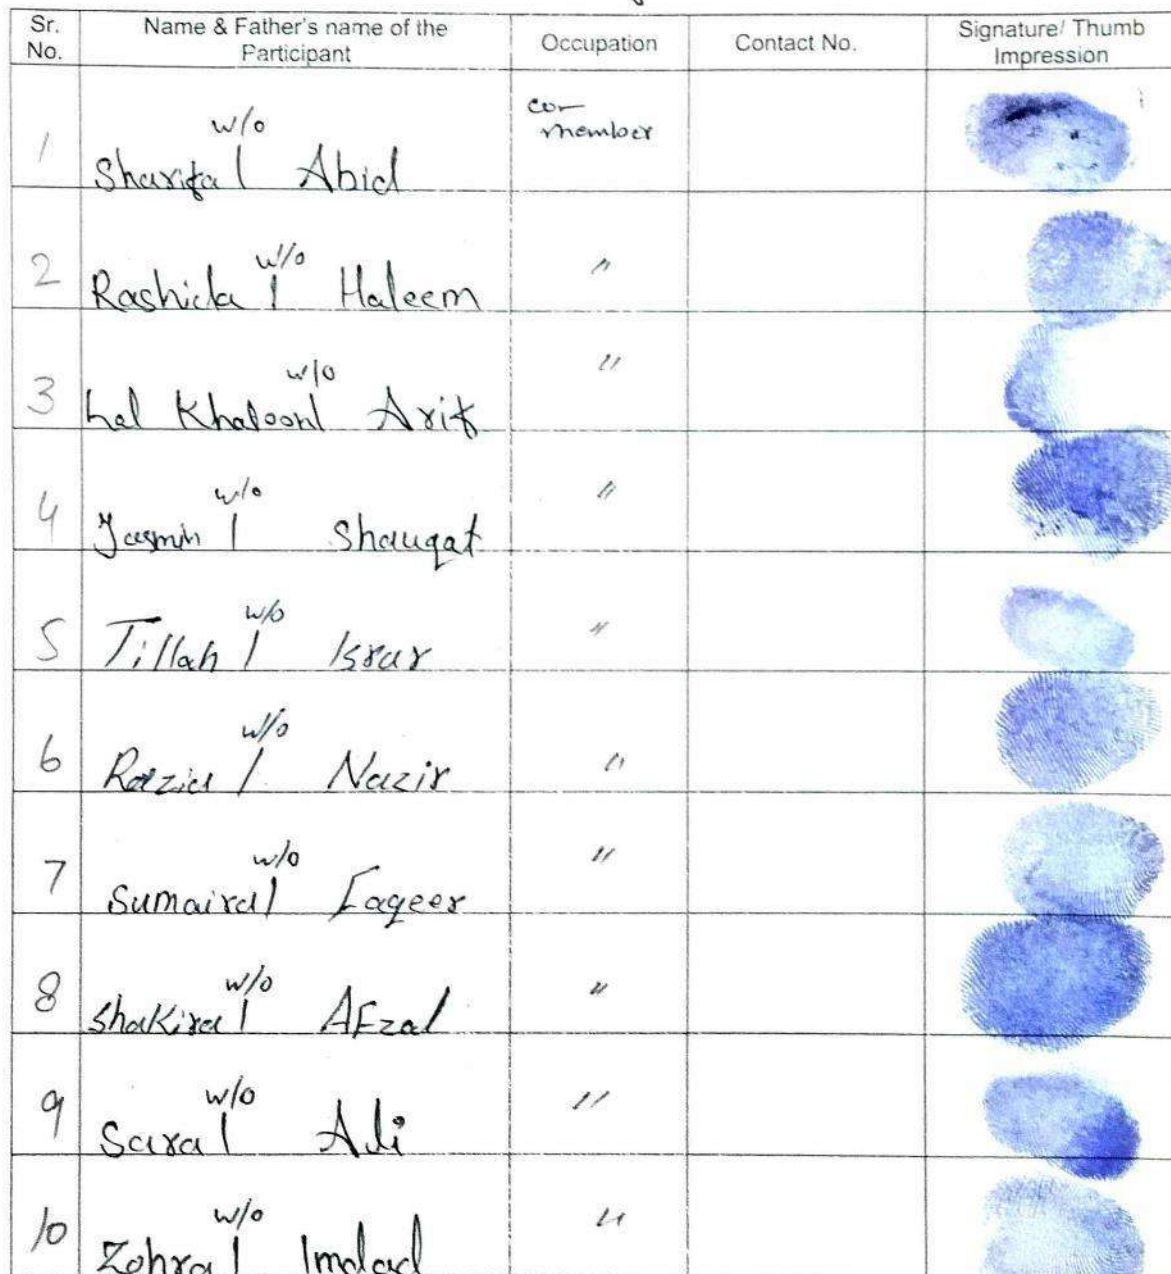 Sr. No. Name & Father's name of the Participant Occupation Contact No. Signature/ Thumb Impression
1 Sharifa w/o Abid member
2 Rashida w/o Haleem "
3 Khatoon w/o Arif "
4 Jasmin w/o Shauqat "
5 Tillah w/o Israr "
6 Razia w/o Nazir "
7 Sumaira w/o Faqeer "
8 Shakira w/o AFzal "
9 Sara w/o Ali "
10 Zohra w/o Imdad "